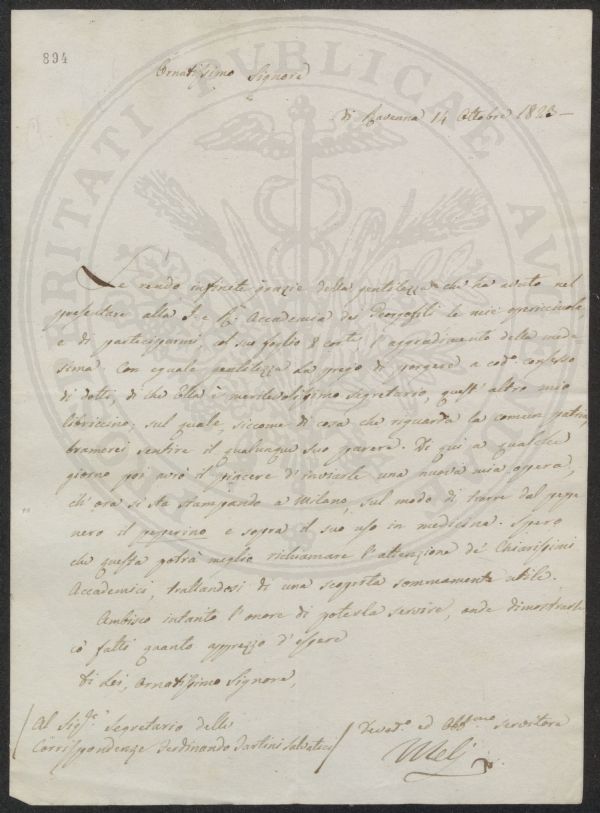 894
Ornatissimo Signore
di Ravenna 14 Ottobre 1823 —
Le rendo infinite grazie della gentilezza che ha avuto nel
presentare alla I. e R. Accademia de' Georgofili le mie opericciuole
e di parteciparmi, col suo foglio 8 corte l'aggradimento della mede-
sima. Con eguale gentilezza La prego di porgere a cod.o consesso
di dotti, di che Ella è meritevolissimo Segretario, quest'altro mio
libriccino; sul quale, siccome di cosa che riguarda la comun patria,
bramerei sentire il qualunque suo parere. Di qui a qualche
giorno poi avrò il piacere d'inviarle una nuova mia opera,
ch'ora si sta stampando a Milano, sul modo di trarre dal pepe
nero il peperino e sopra il suo uso in medicina. Spero
che questa potrà meglio richiamare l'attenzione de' Chiarissimi
Accademici, trattandosi di una scoperta sommamente utile.
Ambisco intanto l'onore di poterla servire, onde dimostrarle
co' fatti quanto apprezzo d'essere
Di Lei, Ornatissimo Signore,
Al Sig.re Segretario delle
Corrispondenze Ferdinando Tartini Salvatici
Devot.o ed Obb.mo Servitore
Melj
POSTERITATI PVBLICAE